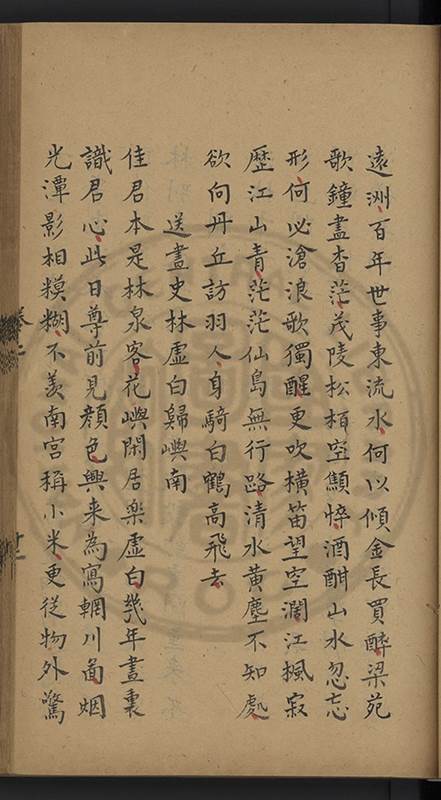 遠洲百年世事東流水何以傾金長買醉梁苑
歌鐘盡杳茫茂陵松栢空顦悴酒酣山水忽忘
形何必滄浪歌獨醒更吹横笛望空濶江楓寂
歷江山青茫茫仙島無行路清水黄塵不知處
欲向丹丘訪羽人身騎白鶴高飛去
送畫史林虛白歸嶼南
佳君本是林泉客花嶼閑居樂虛白幾年畫裏
識君心此日尊前見顔色興来為寫輞川啚烟
光潭影相糢糊不羡南宫稱小米更從物外驚